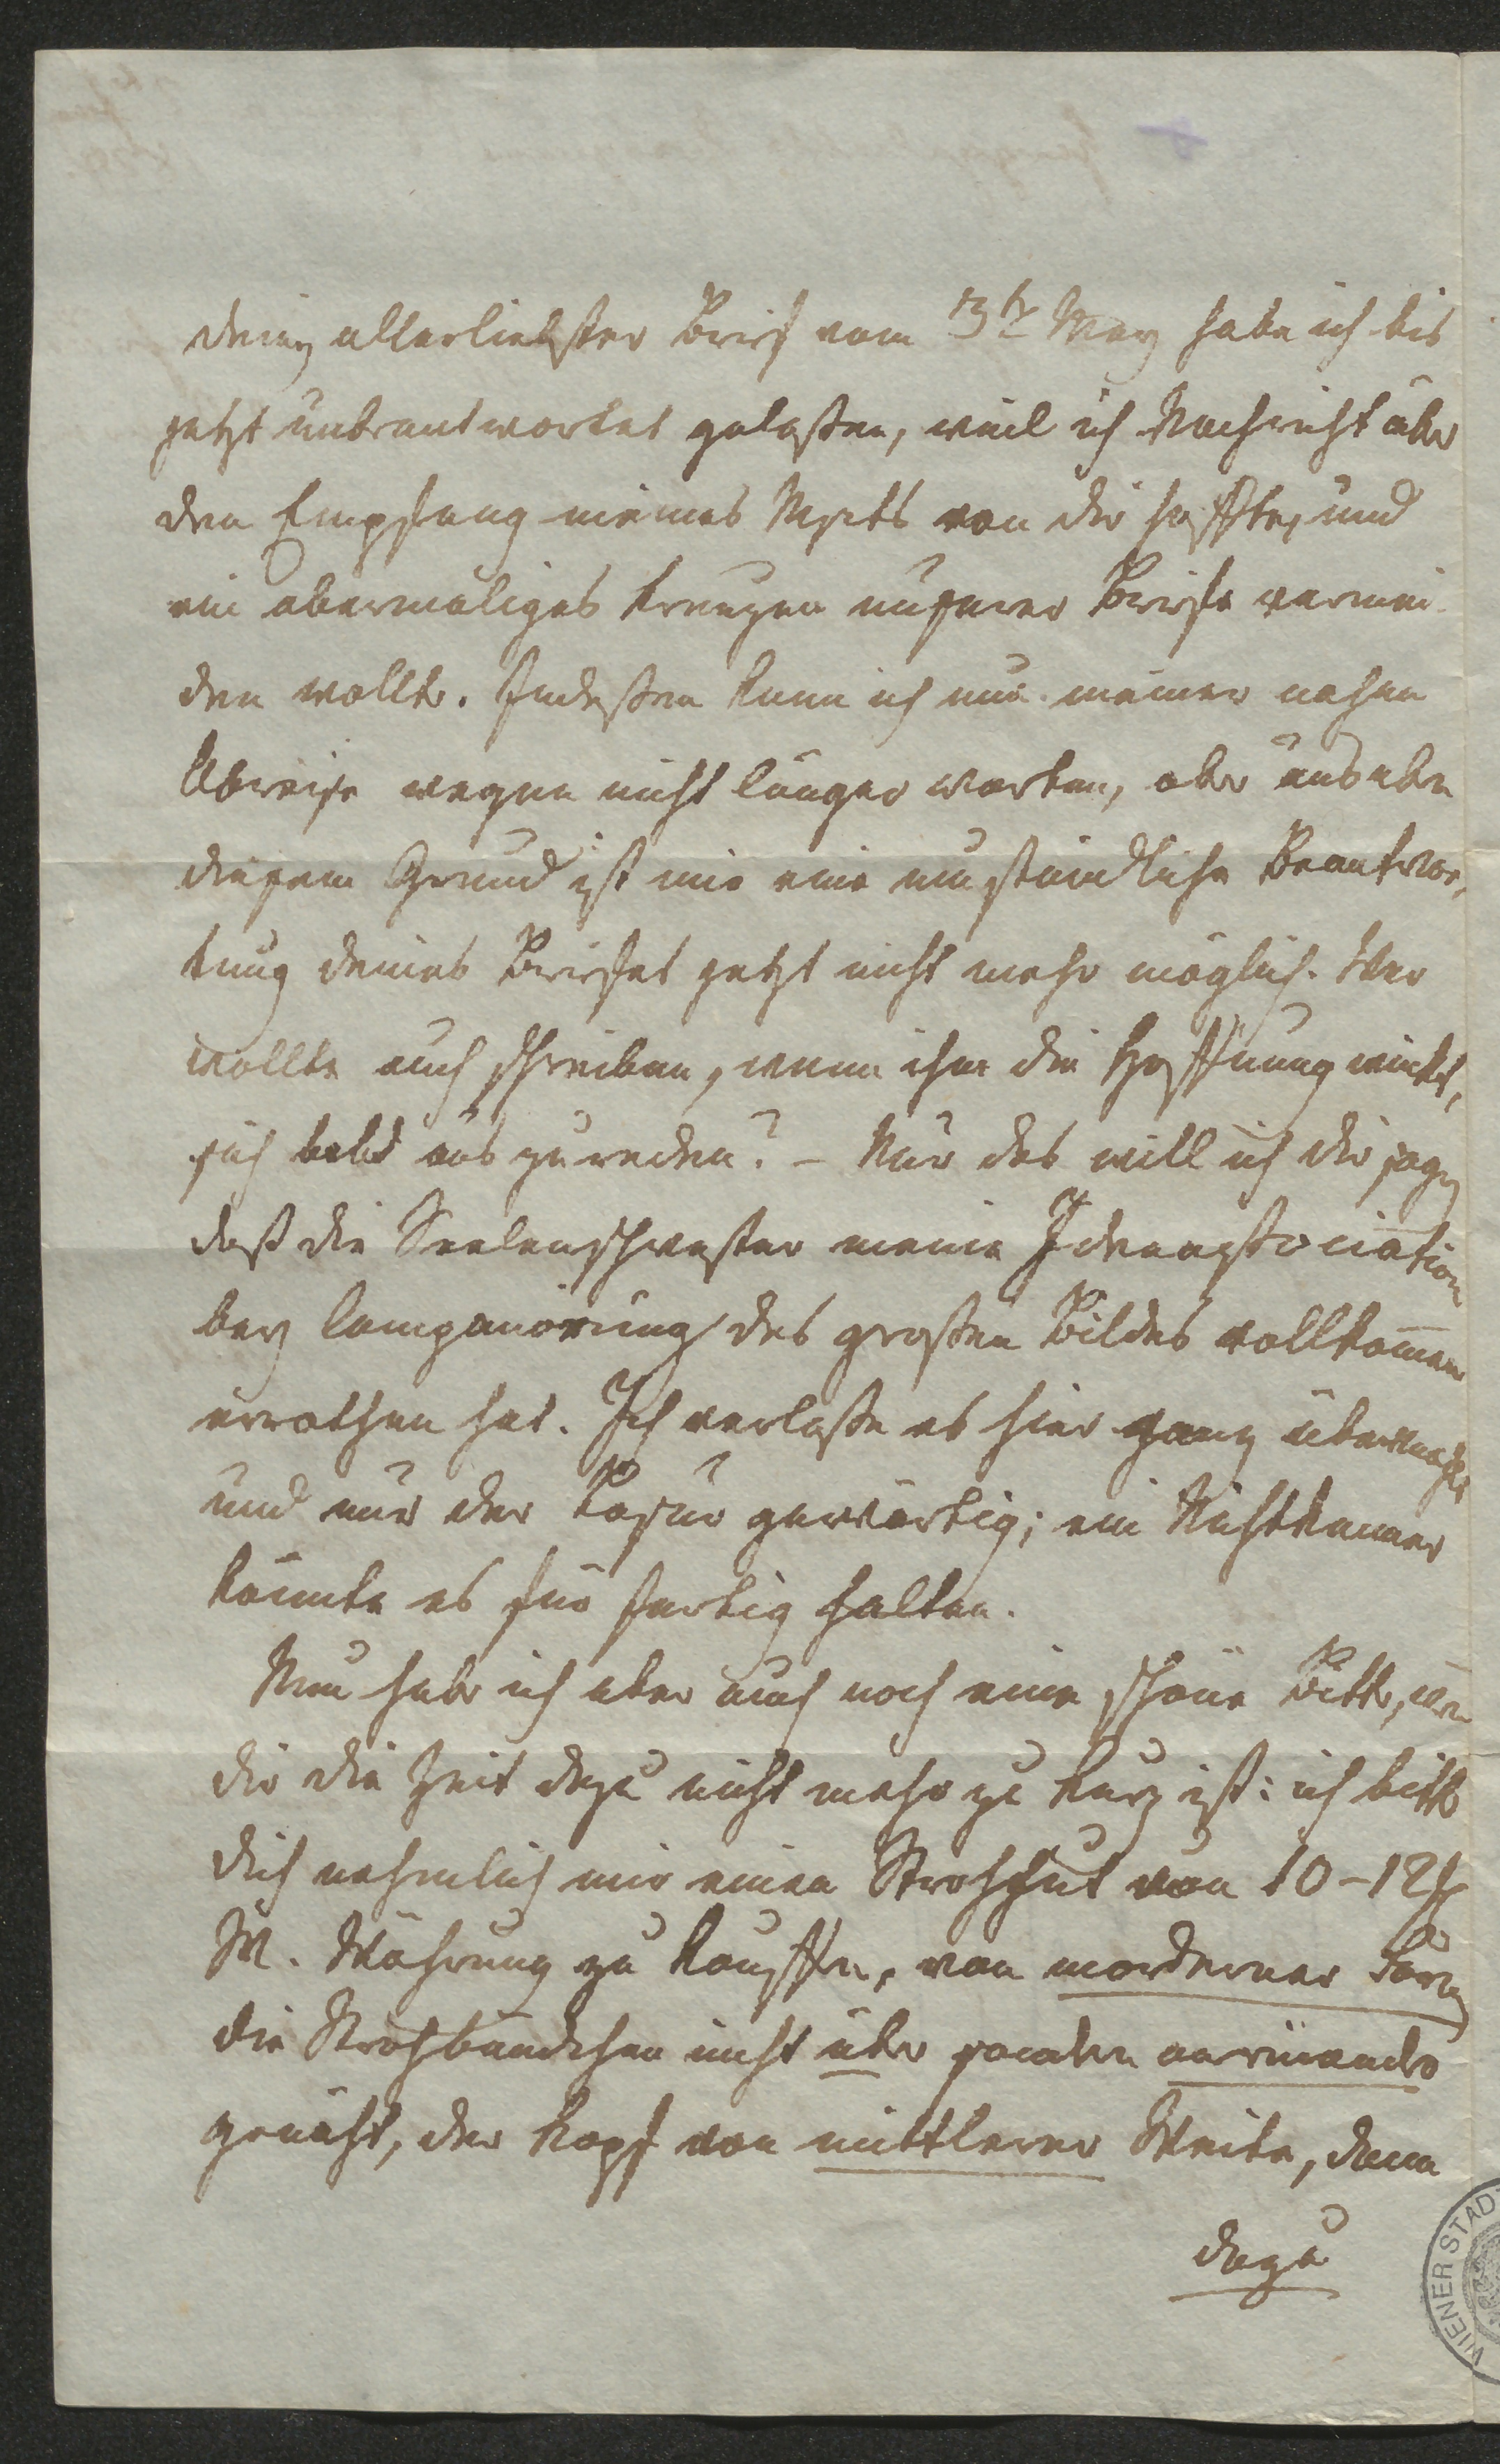 deinen allerliebsten Brief vom 3t May habe ich bis
jetzt unbeantwortet gelaßen, weil ich Nachricht über
den Empfang meines von dir hoffte, und
ein abermaliges Kreuzen unserer Briefe vermei-
den wollte. Indeßen kann ich nun meiner nahen
Abreise wegen nicht länger warten, aber aus eben
diesem Grund ist mir eine umständliche Beantwor-
tung deines Briefes jetzt nicht mehr möglich. Wer
wollte auch schreiben, wenn ihm die Hoffnung winkt,
sich bald auszureden? – Nur das will ich dir sagen
daß die Seelenschwester meine Ideenaßociation
bey Componirung des großen Bildes vollkom̄en
errathen hat. Ich verlaße es hier ganz übermahlt
und nur der Lasur gewärtig; ein Nichtkenner
könnte es für fertig halten.
Nun habe ich aber auch noch eine schöne Bitte, wen̄
dir die Zeit dazu nicht mehr zu kurz ist: ich bitte
dich nehmlich mir einen Strohhut von 10–12 f
W. Währung zu kauffen, von moderner Form
die Strohbändchen nicht über sondern aneinander
genäht, der Kopf von mittlerer Weite, denn
dazu
WIENER STADT